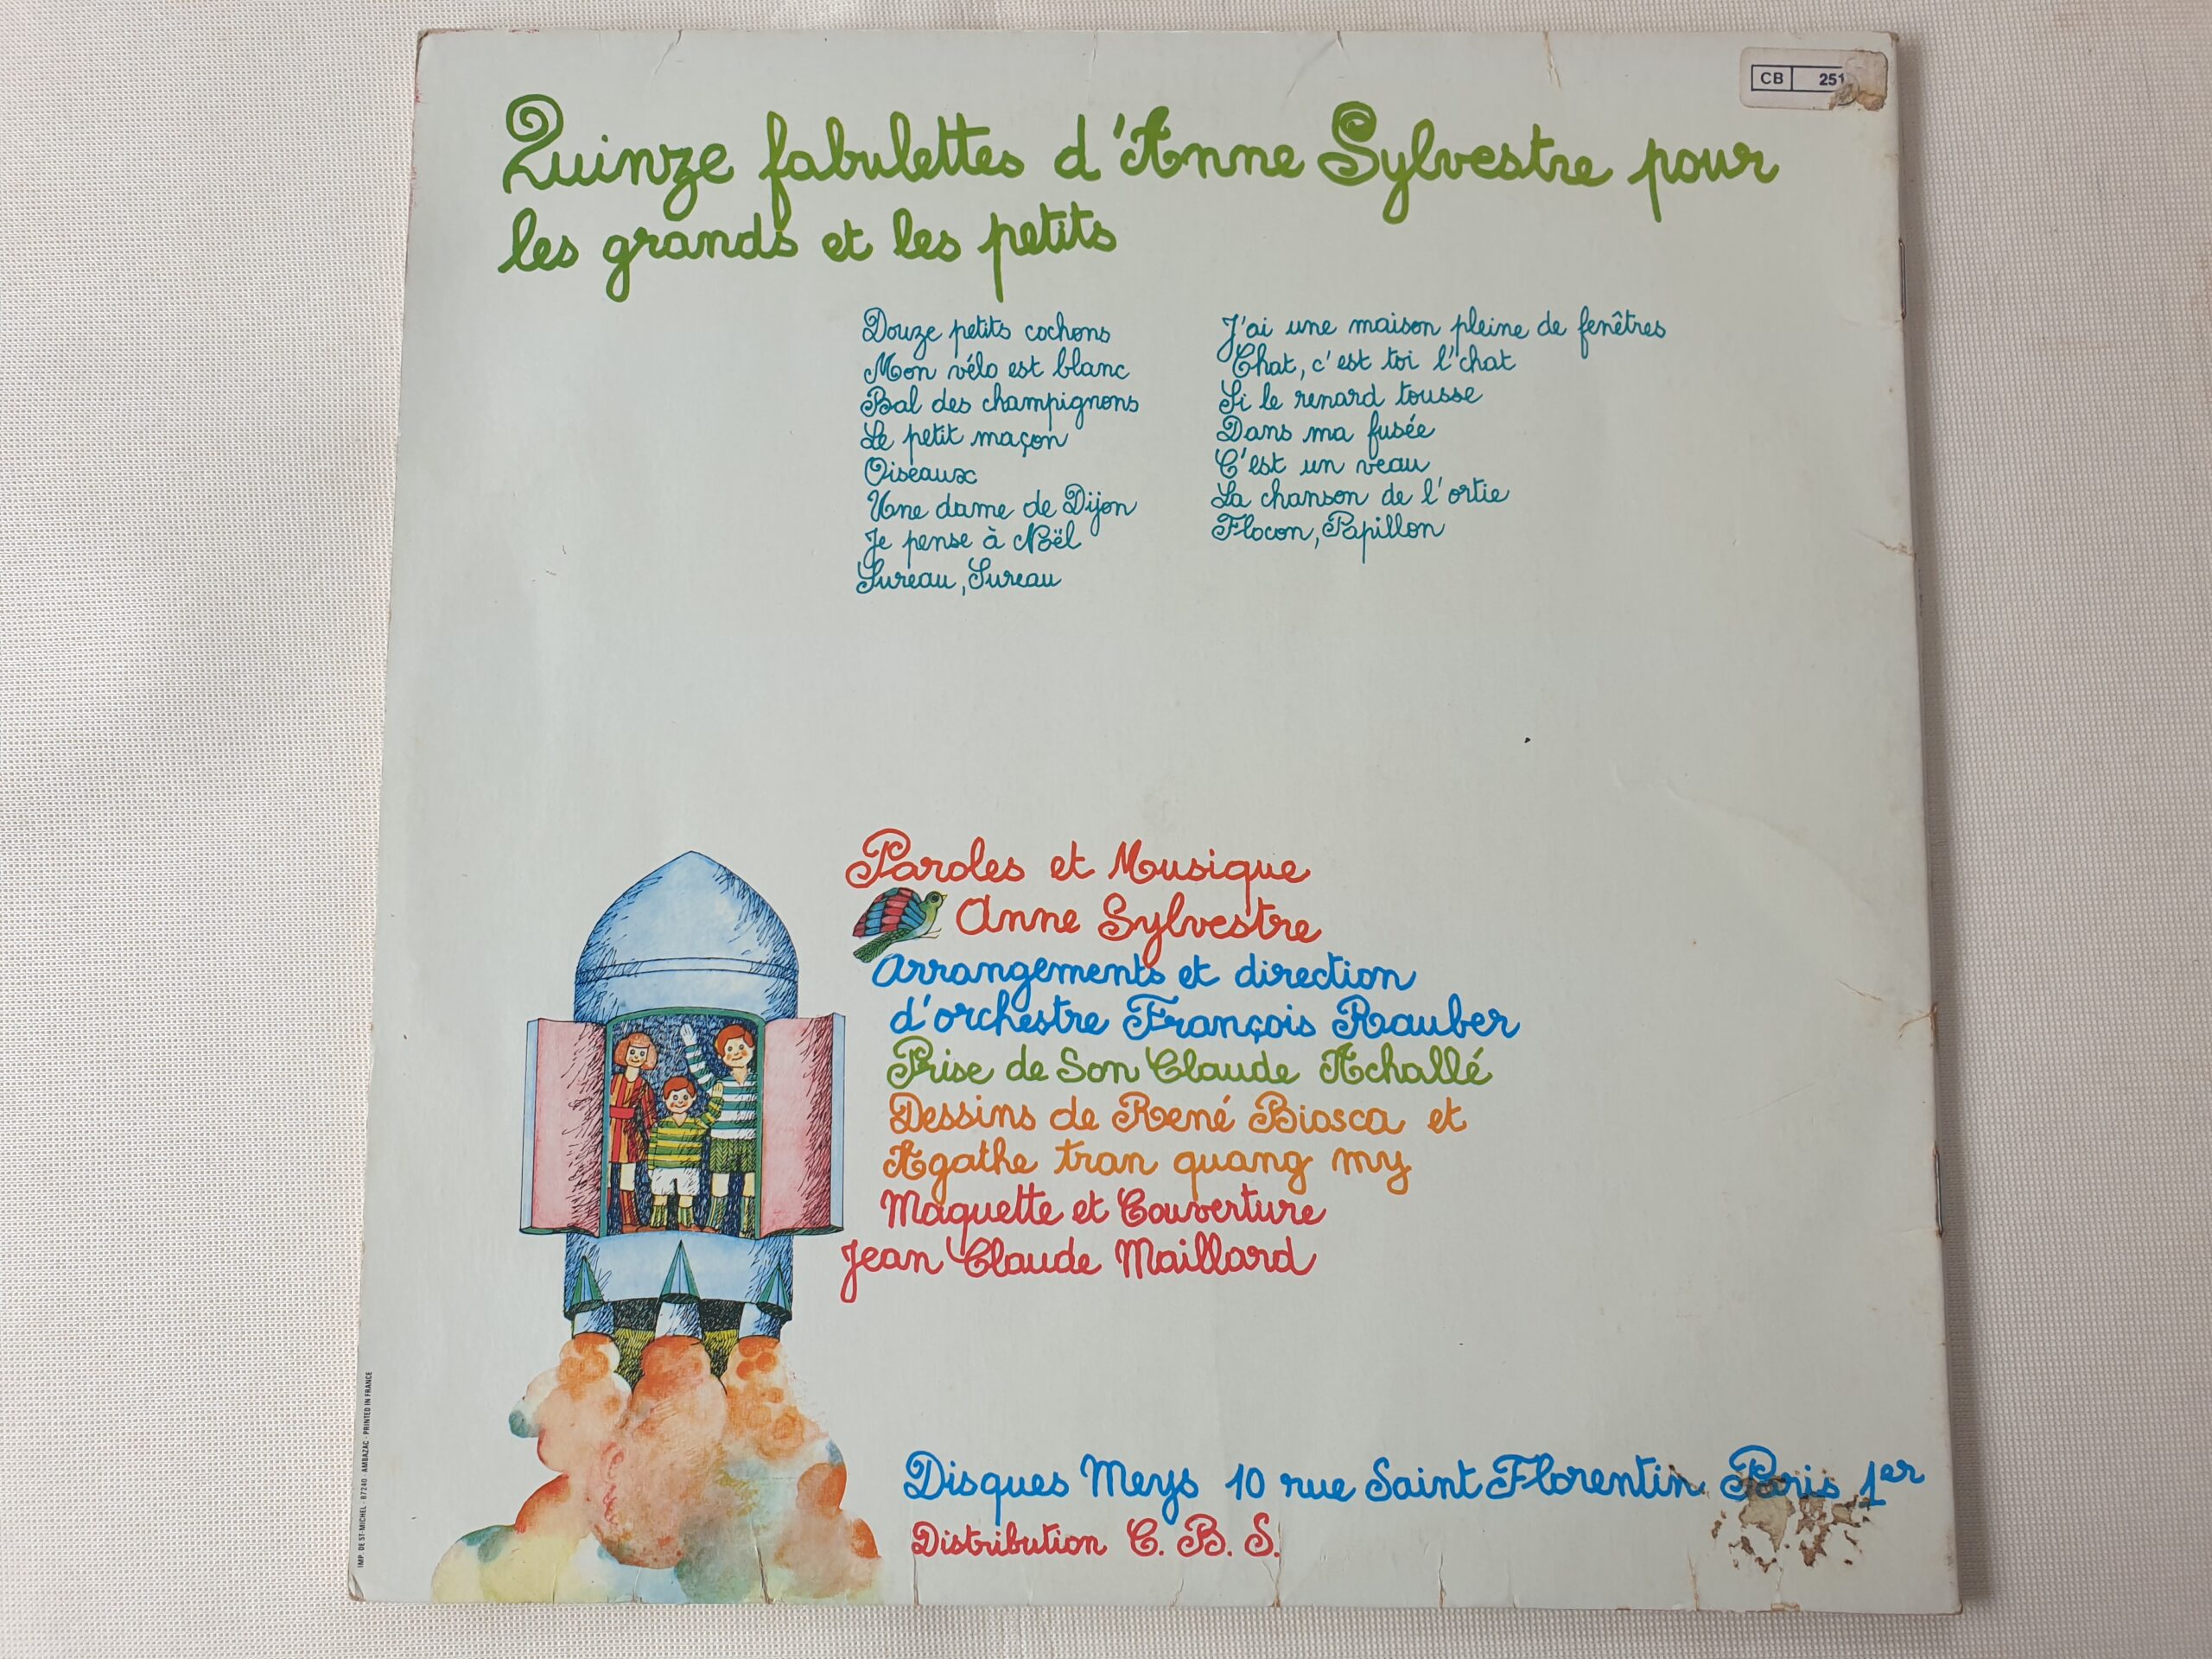 CB 251
Quinze fabulettes d'Anne Sylvestre pour
les grands et les petits
Douze petits cochons
Mon vélo est blanc
Bal des champignons
Le petit maçon
Oiseaux
Une dame de Dijon
Je pense à Noël
Sureau, Sureau
J'ai une maison pleine de fenêtres
Chat, c'est toi l'chat
Si le renard tousse
Dans ma fusée
C'est un veau
La chanson de l'ortie
Flocon, Papillon
Paroles et Musique
Anne Sylvestre
Arrangements et direction
d'orchestre François Rauber
Prise de Son Claude Achallé
Dessins de René Biosca et
Agathe tran quang my
Maquette et Couverture
Jean Claude Maillard
Disques Meys 10 rue Saint Florentin Paris 1er
Distribution C. B. S.
IMP. DE ST-MICHEL - 87240 AMBAZAC - PRINTED IN FRANCE